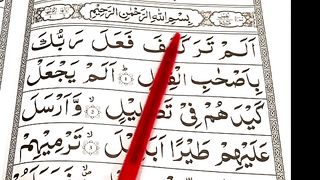 بِسْمِ اللهِ الرَّحْمٰنِ الرَّحِيْمِ
اَلَمْ تَرَ كَيْفَ فَعَلَ رَبُّكَ
بِاَصْحٰبِ الْفِيْلِ ۝ اَلَمْ يَجْعَلْ
كَيْدَهُمْ فِيْ تَضْلِيْلٍ ۝ وَّاَرْسَلَ
عَلَيْهِمْ طَيْرًا اَبَابِيْلَ ۝ تَرْمِيْهِمْ